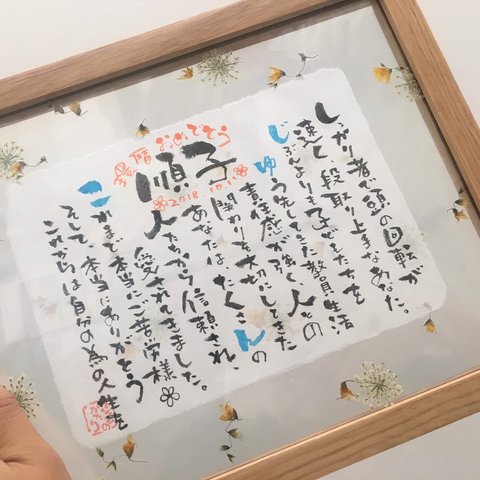 還暦
おめでとう
順子
2018.10.1
しっかり者で頭の回転が
速く、段取り上手なあなた。
じぶんよりも子どもたちを
ゆう先してきた教員生活
責任感が強く、人との
関わりを大切にしてきた
あなたは、たくさんの
人たちから信頼され、
愛されてきました。
これまで本当にご苦労様
そして本当にありがとう
これからは自分の為の人生を